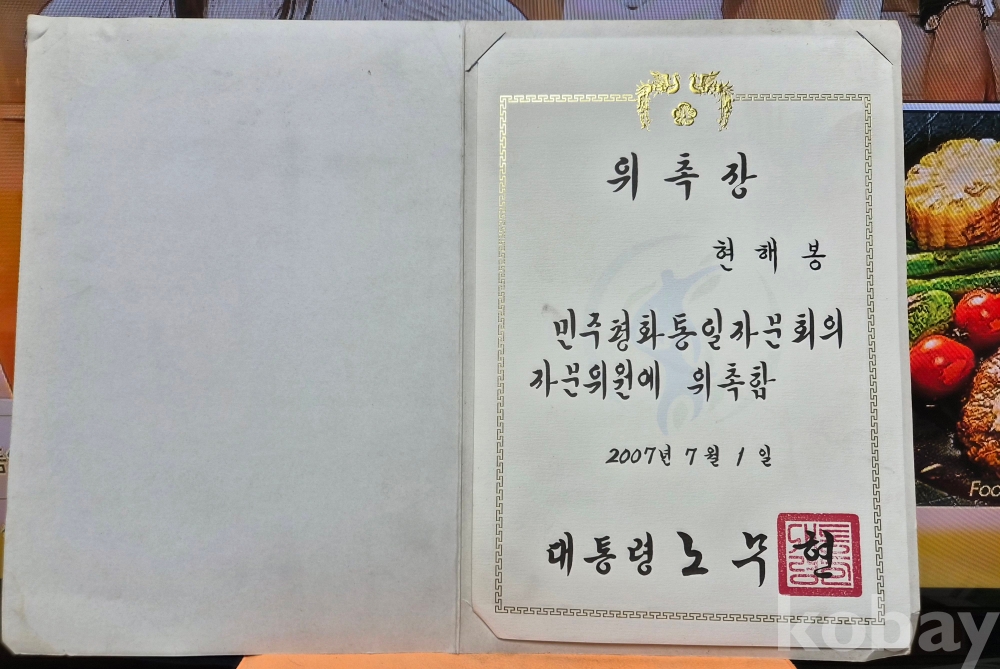 위촉장
현해봉
민주평화통일자문회의
자문위원에 위촉함
2007년 7월 1일
대통령 노무현
Foo
kobay